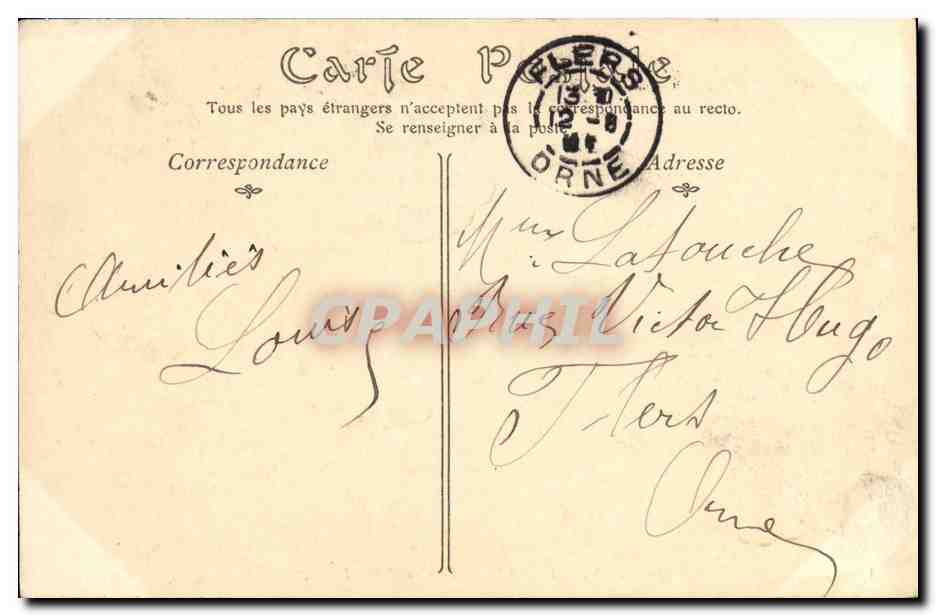 Carte Postale
Tous les pays étrangers n'acceptent pas la correspondance au recto.
Se renseigner à la poste
Correspondance
Adresse
FLERS
13
12 -8
ORNE
Amitiés
Louise
Latouche
Rue Victor Hugo
Flers
Orne
CPAPHIL